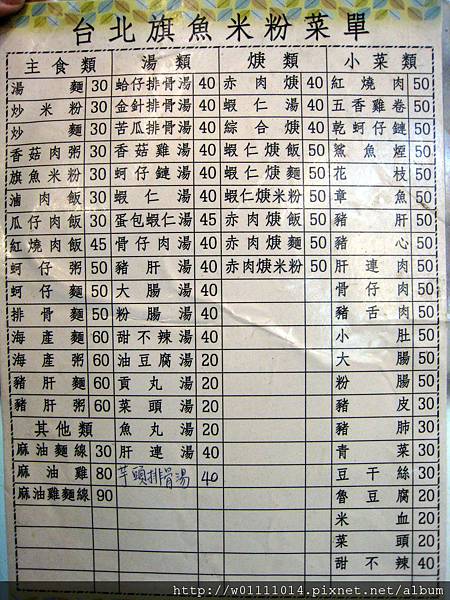 台北旗魚米粉菜單
主食類 湯類 焿類 小菜類
湯麵 30 蛤仔排骨湯 40 赤肉焿 40 紅燒肉 50
炒米粉 30 金針排骨湯 40 蝦仁湯 40 五香雞卷 50
炒麵 30 苦瓜排骨湯 40 綜合焿 40 乾蚵仔鏈 50
香菇肉粥 30 香菇雞湯 40 蝦仁焿飯 50 鯊魚煙 50
旗魚米粉 30 蚵仔鏈湯 40 蝦仁焿麵 50 花枝 50
滷肉飯 30 蝦仁湯 40 蝦仁焿米粉 50 章魚 50
瓜仔肉飯 30 蛋包蝦仁湯 45 赤肉焿飯 50 豬肝 50
紅燒肉飯 45 骨仔肉湯 40 赤肉焿麵 50 豬心 50
蚵仔粥 50 豬肝湯 40 赤肉焿米粉 50 肝連肉 50
蚵仔麵 50 大腸湯 40 骨仔肉 50
排骨麵 50 粉腸湯 40 豬舌肉 50
海產麵 60 甜不辣湯 40 小肚 50
海產粥 60 油豆腐湯 20 大腸 50
豬肝麵 60 貢丸湯 20 粉腸 50
豬肝粥 60 菜頭湯 20 豬皮 30
其他類 魚丸湯 20 豬肺 30
麻油麵線 30 肝連湯 40 青菜 30
麻油雞 80 芋頭排骨湯 40 豆干絲 30
麻油雞麵線 90 魯豆腐 20
米血 20
菜頭 20
甜不辣 40
http://w01111014.pixnet.net/album